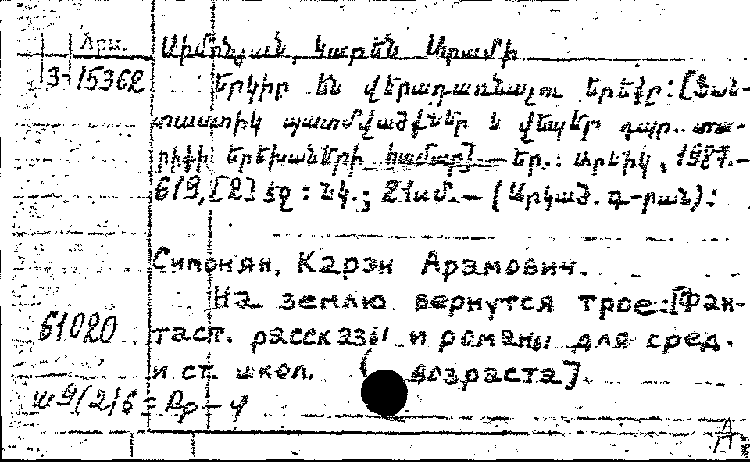 Арм.
Սիմոնյան, Կարեն Արամի
3-15362
Երկիր են վերադառնալու երեքը: [Ֆան-
տաստիկ պատմվածքներ և վեպեր դպր. տա-
րիքի երեխաների համար].— Եր.: Արևիկ, 1987.—
619, [2] էջ: նկ.; 21սմ.— (Արկած. գ-րան):
Симонян, Карэн Арамович.
На землю вернутся трое:[Фан-
61020
таст. рассказы и романы для сред.
и ст. школ. возраста].